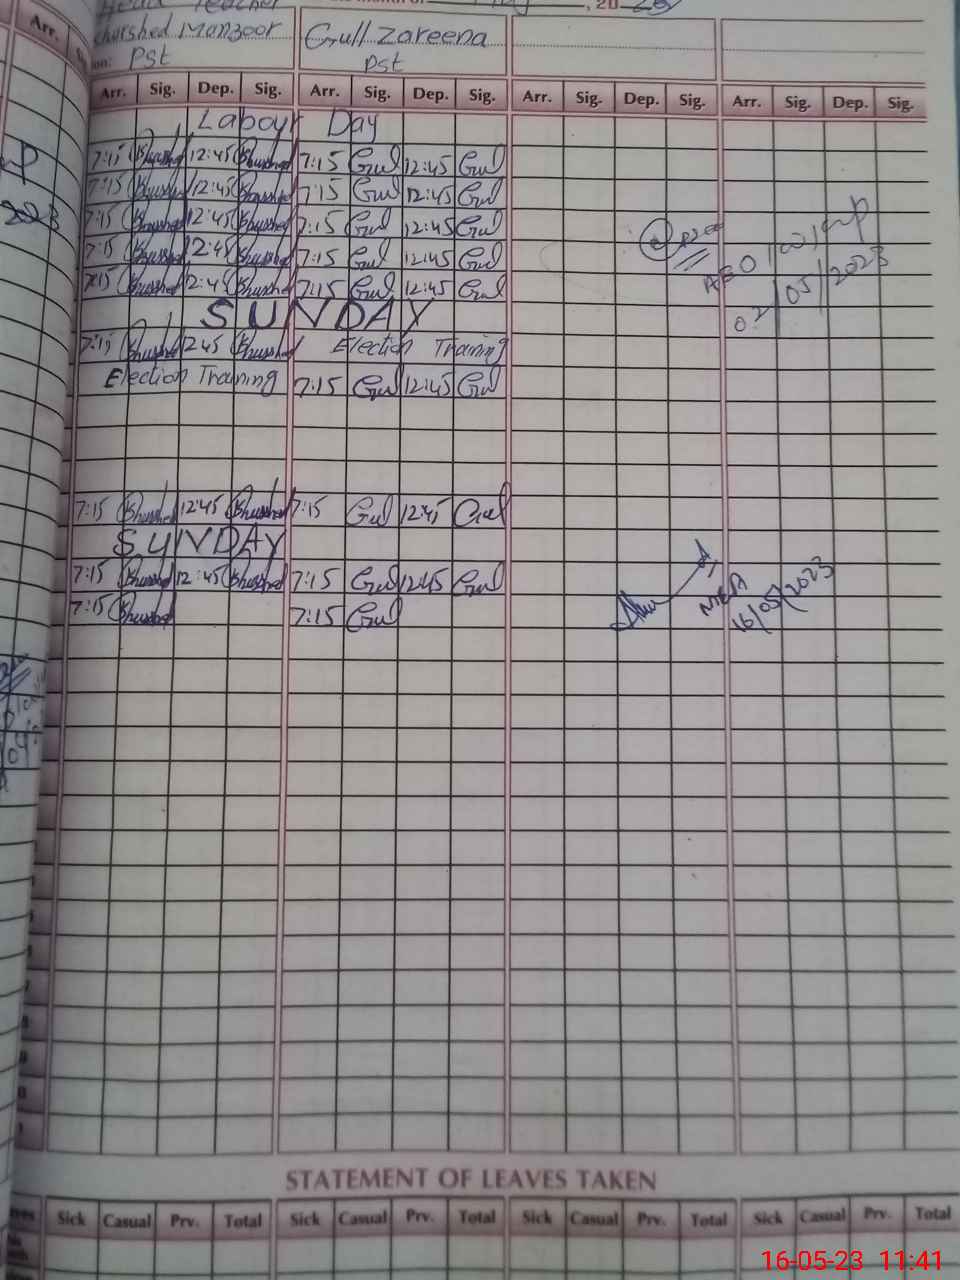 Head Teacher , 20 23
Arr.
Khurshed Manzoor Gull Zareena
on: Pst Pst
Arr. Sig. Dep. Sig. Arr. Sig. Dep. Sig. Arr. Sig. Dep. Sig. Arr. Sig. Dep. Sig.
Labour Day
7:15 Khurshed 12:45 Khurshed 7:15 Gul 12:45 Gul
7:15 Khurshed 12:45 Khurshed 7:15 Gul 12:45 Gul
7:15 Khurshed 12:45 Khurshed 7:15 Gul 12:45 Gul
7:15 Khurshed 12:45 Khurshed 7:15 Gul 12:45 Gul
7:15 Khurshed 12:45 Khurshed 7:15 Gul 12:45 Gul
ABO
02/05/2023
SUNDAY
7:15 Khurshed 12:45 Khurshed Election Training
Election Training 7:15 Gul 12:45 Gul
7:15 Khurshed 12:45 Khurshed 7:15 Gul 12:45 Gul
SUNDAY
7:15 Khurshed 12:45 Khurshed 7:15 Gul 12:45 Gul
7:15 Khurshed 7:15 Gul
16/05/2023
STATEMENT OF LEAVES TAKEN
Sick Casual Prv. Total Sick Casual Prv. Total Sick Casual Prv. Total Sick Casual Prv. Total
16-05-23 11:41